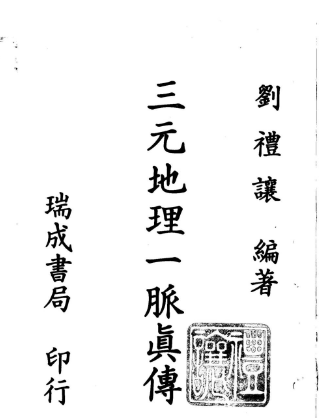 劉禮讓 編著
三元地理一脈眞傳
瑞成書局 印行